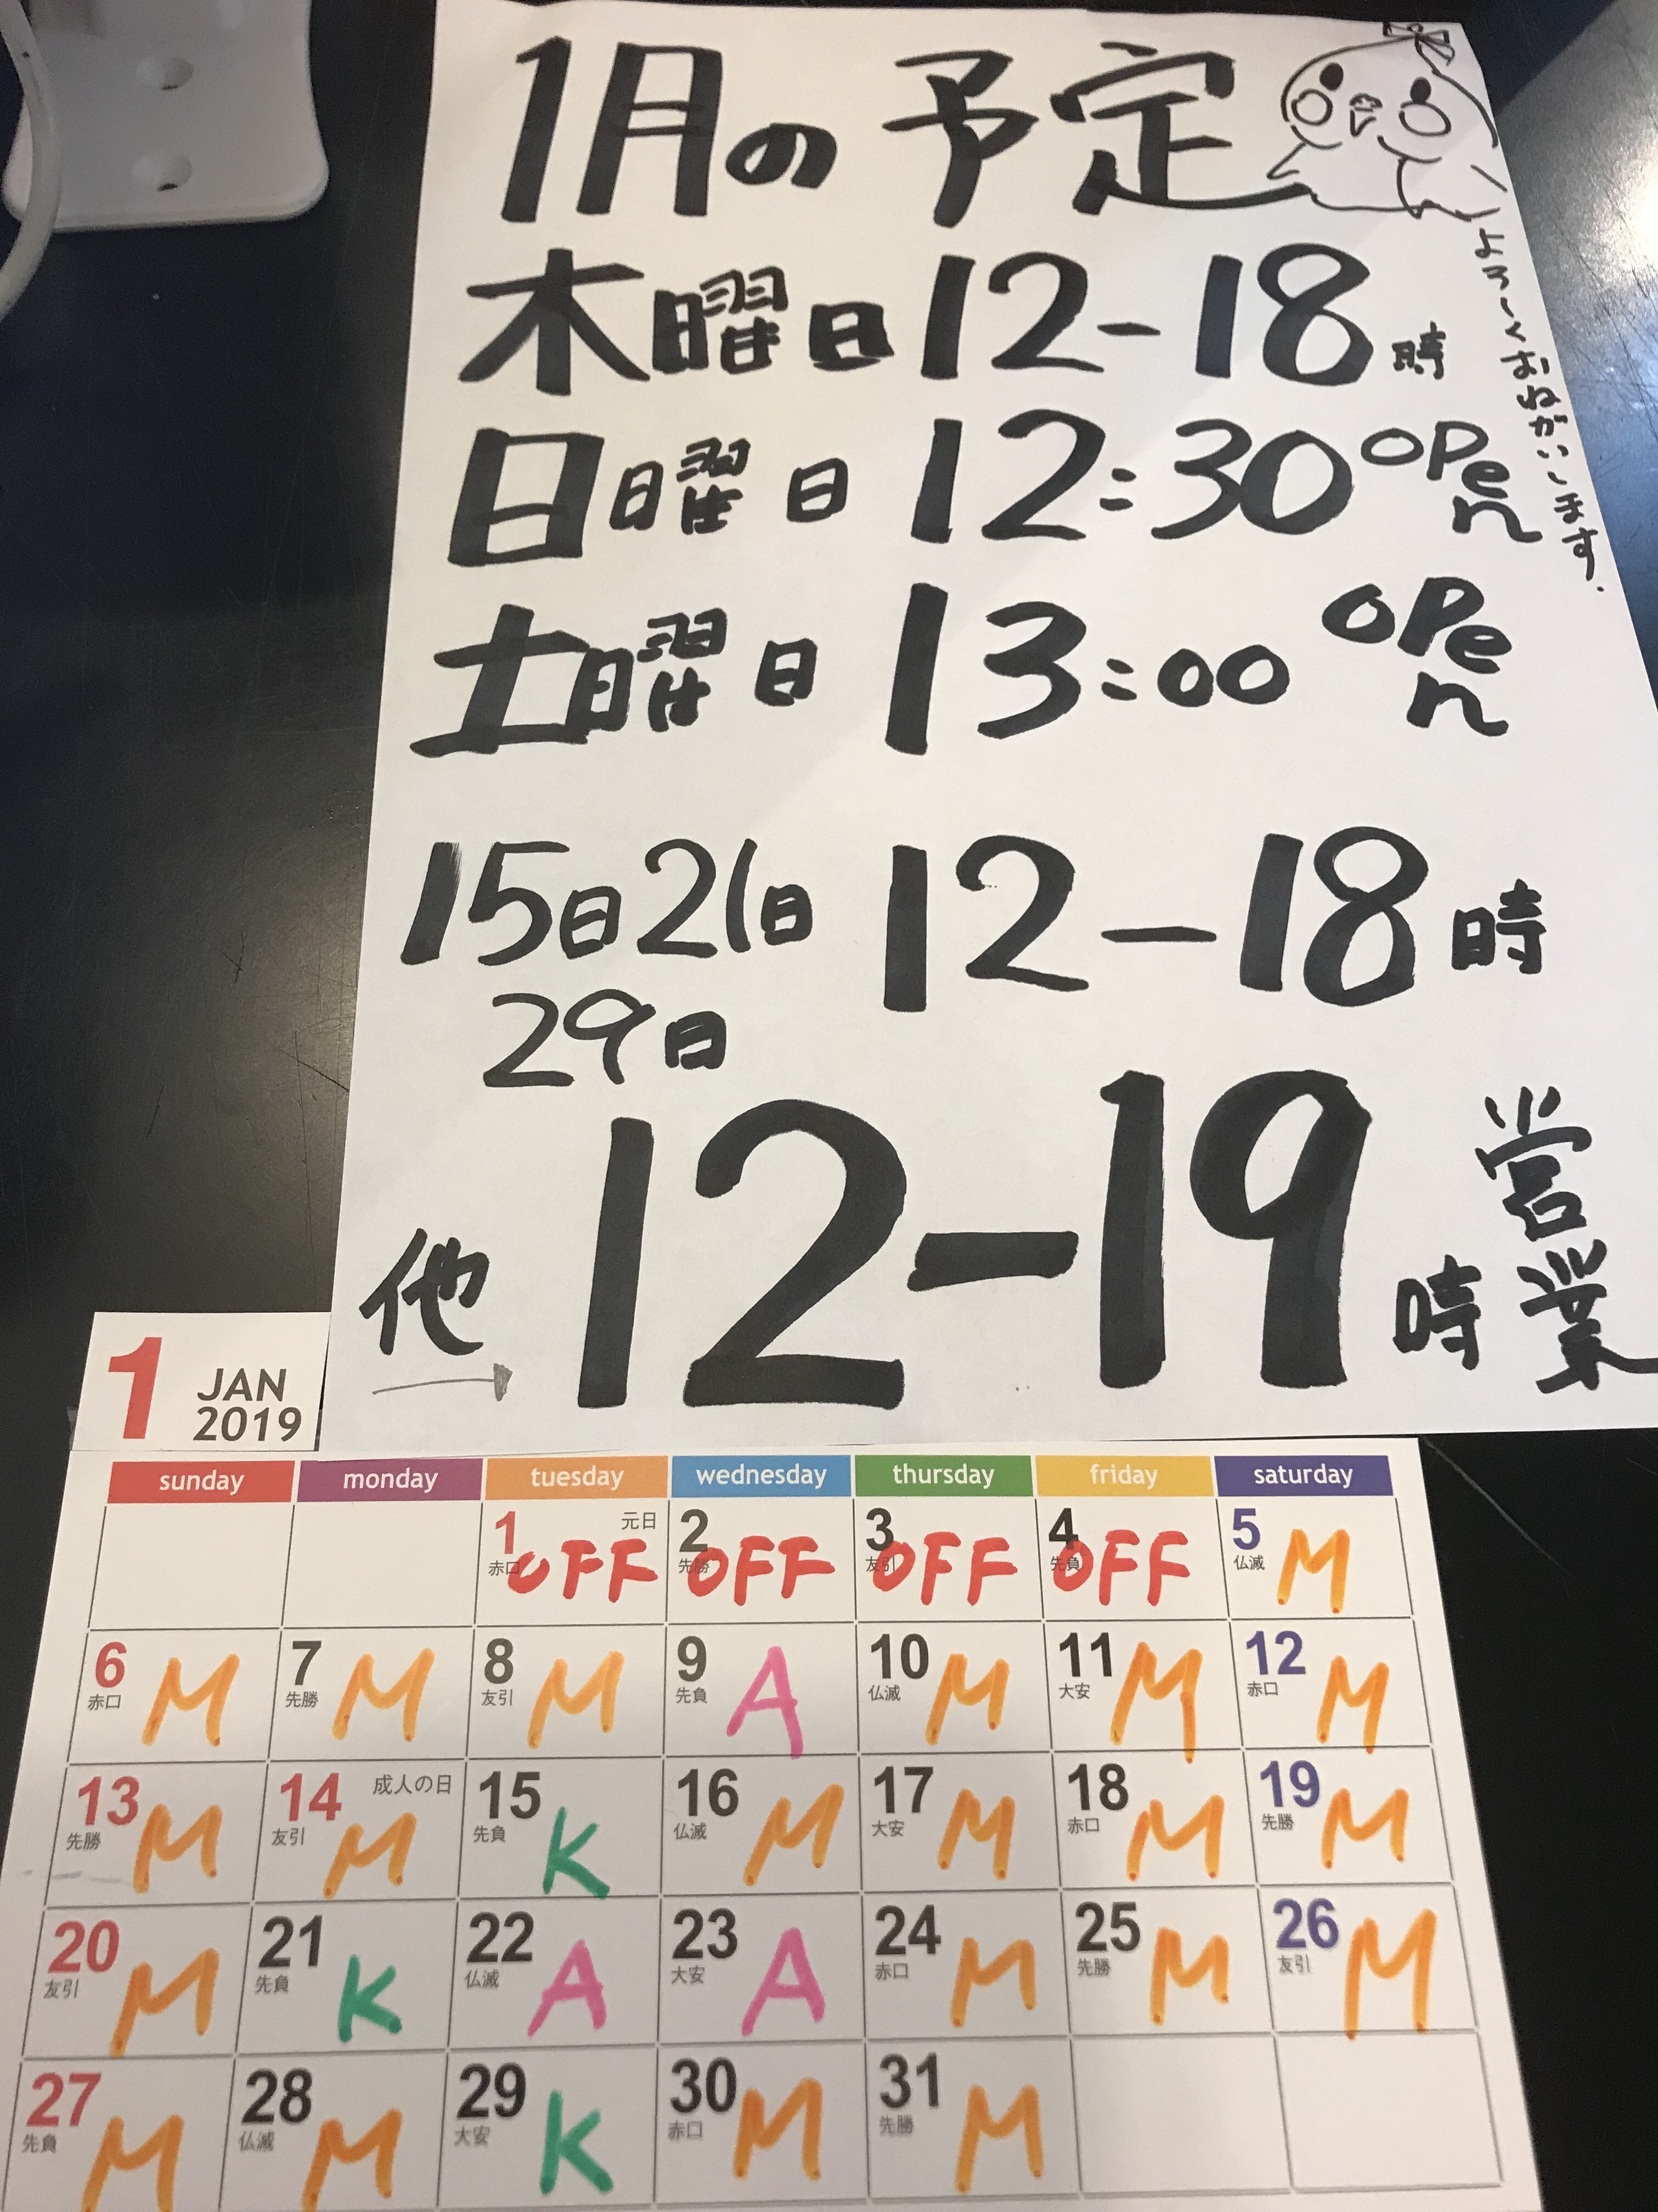 1月の予定
よろしくおねがいします.
木曜日 12-18時
日曜日 12:30 open
土曜日 13:00 open
15日 21日 12-18時
29日
他 12-19時 営業
1 JAN
2019
sunday monday tuesday wednesday thursday friday saturday
1 元日 赤口 OFF 2 先勝 OFF 3 友引 OFF 4 先負 OFF 5 仏滅 M
6 赤口 M 7 先勝 M 8 友引 M 9 先負 A 10 仏滅 M 11 大安 M 12 赤口 M
13 先勝 M 14 成人の日 友引 M 15 先負 K 16 仏滅 M 17 大安 M 18 赤口 M 19 先勝 M
20 友引 M 21 先負 K 22 仏滅 A 23 大安 A 24 赤口 M 25 先勝 M 26 友引 M
27 先負 M 28 仏滅 M 29 大安 K 30 赤口 M 31 先勝 M